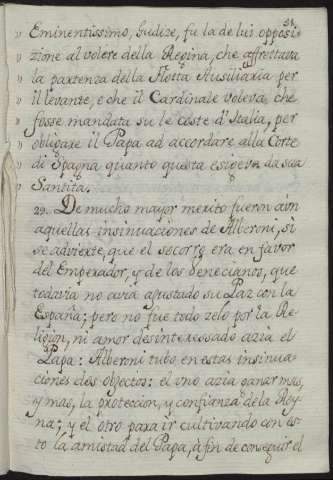 31.
" Eminentissimo, Giudize, fu la de lui opposi
" zione al volere della Regina, che affrettava
" la partenza della Flotta Ausiliaria per
" il levante, e che il Cardinale voleva che
" fosse mandata su le coste d'Italia, per
" obligare il Papa ad accordare alla Corte
" di Spagna quanto questa esigeva da sua
" Santità.
29. De mucho mayor merito fueron aun
aquellas insinuaciones de Alberoni, si
se advierte, que el socorro era en favor
del Emperador, y de los Venecianos, que
todavia no avia ajustado su Paz con la
España; pero no fue todo zelo por la Re
ligion, ni amor desinteressado azia el
Papa: Alberoni tubo en estas insinua
ciones dos objectos: el uno azia ganar mas,
y mas, la proteccion, y confianza de la Rey
na; y el otro para ir cultivando con es
to la amistad del Papa, à fin de conseguir el